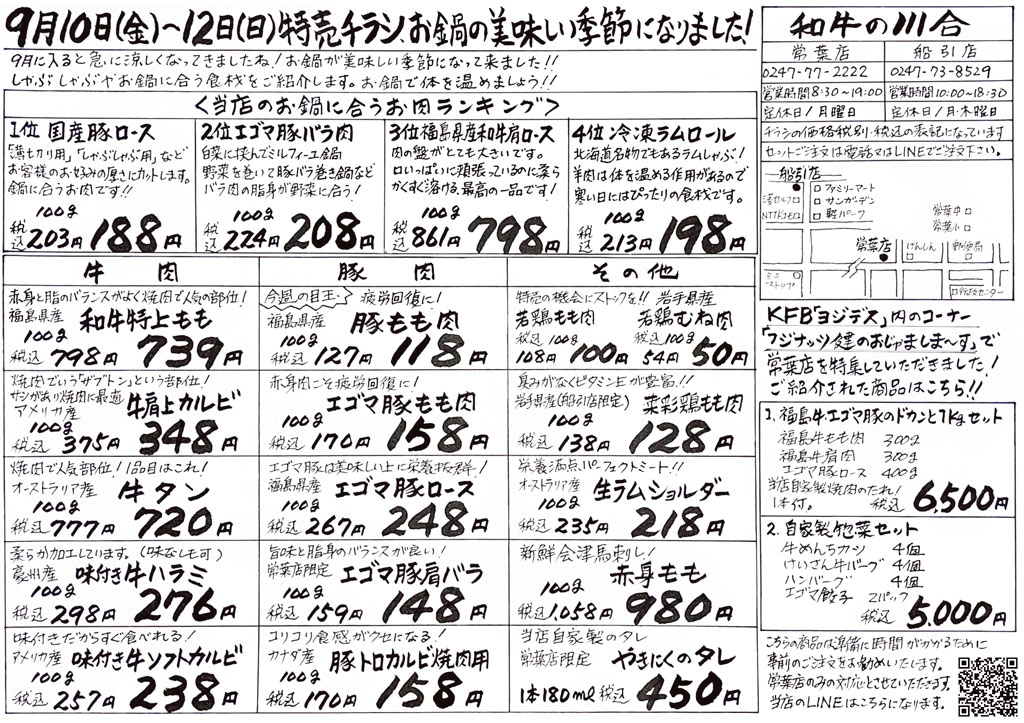 9月10日(金)〜12日(日)特売チラシ.お鍋の美味しい季節になりました!
9月に入ると急に涼しくなってきましたね!お鍋が美味しい季節になって来ました!!
しゃぶしゃぶやお鍋に合う食材をご紹介します。お鍋で体を温めましょう!!
<当店のお鍋に合うお肉ランキング>
1位 国産豚ロース
「薄切り用」「しゃぶしゃぶ用」など
お客様のお好みの厚さにカットします。
鍋に合うお肉です!!
100g
税込203円 188円
2位エゴマ豚バラ肉
白菜に挟んでミルフィーユ鍋
野菜を巻いて豚バラ巻き鍋など
バラ肉の脂身が野菜に合う!
100g
税込224円 208円
3位福島県産和牛肩ロース
肉の盤がとても大きいです。
口いっぱいに頬張っているのに柔ら
かくすぐ溶ける、最高の一品です!
100g
税込861円 798円
4位 冷凍ラムロール
北海道名物でもあるラムしゃぶ!
羊肉は体を温める作用があるので
寒い日にはぴったりの食材です。
100g
税込213円 198円
牛肉
赤身と脂のバランスがよく焼肉で人気の部位!
福島県産 和牛特上もも
100g
税込798円 739円
焼肉でいう「ザブトン」という部位!
サシがあり焼肉に最適
アメリカ産 牛肩上カルビ
100g
税込375円 348円
焼肉で人気部位!1品目はこれ!
オーストラリア産 牛タン
100g
税込777円 720円
柔らか加工しています。(味なしも可)
豪州産 味付き牛ハラミ
100g
税込298円 276円
味付きだからすぐ食べれる!
アメリカ産 味付き牛ソフトカルビ
100g
税込257円 238円
豚肉
今週の目玉 疲労回復に!
福島県産 豚もも肉
100g
税込127円 118円
赤身肉こそ疲労回復に!
エゴマ豚もも肉
100g
税込170円 158円
エゴマ豚は美味しい上に栄養も抜群!
福島県産 エゴマ豚ロース
100g
税込267円 248円
旨味と脂身のバランスが良い!
常葉店限定 エゴマ豚肩バラ
100g
税込159円 148円
コリコリ食感がクセになる!
カナダ産 豚トロカルビ焼肉用
100g
税込170円 158円
その他
特売の機会にストックを!! 岩手県産
若鶏もも肉 若鶏むね肉
税込100g 税込100g
108円 100円 54円 50円
臭みがなくビタミンEが豊富!!
岩手県産(船引店限定) 菜彩鶏もも肉
100g
税込138円 128円
栄養満点パーフェクトミート!!
オーストラリア産 生ラムショルダー
100g
税込235円 218円
新鮮会津馬刺し!
赤身もも
100g
税込1,058円 980円
当店自家製のタレ
常葉店限定 やきにくのタレ
1本180ml 税込 450円
和牛の川合
常葉店 船引店
0247-77-2222 0247-73-8529
営業時間8:30〜19:00 営業時間10:00〜18:30
定休日/月曜日 定休日/月・木曜日
チラシの価格税別・税込の表記になっています
セットご注文は電話又はLINEでご注文下さい。
船引店
ファミリーマート
サンガーデン
軽パーク
NTTドコモ
常葉中
常葉小
常葉店
けんしん
郵便局
ミニストップ
行政センター
KFB「ヨジデス」内のコーナー
「フジナッツ健のおじゃましま〜す」で
常葉店を特集していただきました!
ご紹介された商品はこちら!!
1.福島牛エゴマ豚のドカンと1kgセット
福島牛もも肉 300g
福島牛肩肉 300g
エゴマ豚ロース 400g
当店自家製焼肉のたれ!
1本付。 税込 6,500円
2.自家製惣菜セット
牛めんちカツ 4個
けいざん牛バーグ 4個
ハンバーグ 4個
エゴマ餃子 2パック
税込 5,000円
こちらの商品は準備に時間がかかるために
事前のご注文をお勧めいたします。
常葉店のみの対応とさせていただきます。
当店のLINEはこちらになります。